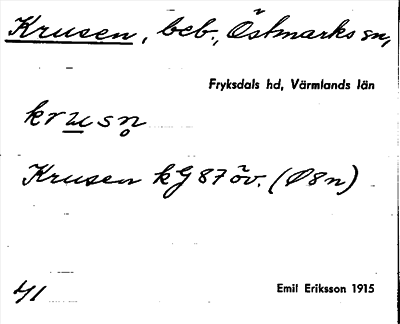 Krusen, beb., Östmarks sn,
Fryksdals hd, Värmlands län
krusn̥
Krusen kG 87 öv. (Ø8n)
41 Emil Eriksson 1915